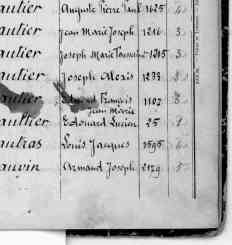 autier Auguste Pierre Paul 1625 4
autier Jean Marie Joseph 1216 3
autier Joseph Marie 1215 3
autier Joseph Alexis 1233 8
autier Edmond François 1102 8
Jean Marie
authier Edouard Lucien 25 1
autras Louis Jacques 1595 6
auvin Armand Joseph 2129 5